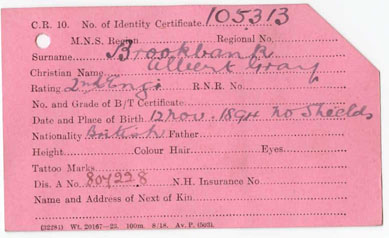 C.R. 10. No. of Identity Certificate 105313
M.N.S. Region Regional No.
Surname Brookbank
Christian Name Albert Gray
Rating 2nd Eng. R.N.R. No.
No. and Grade of B/T Certificate
Date and Place of Birth 12 Nov. 1894 No Shields
Nationality British Father
Height Colour Hair Eyes
Tattoo Marks
Dis. A No. 807228 N.H. Insurance No
Name and Address of Next of Kin
(32284) Wt. 20167—23. 100m. 8/18. Av. P. (503).